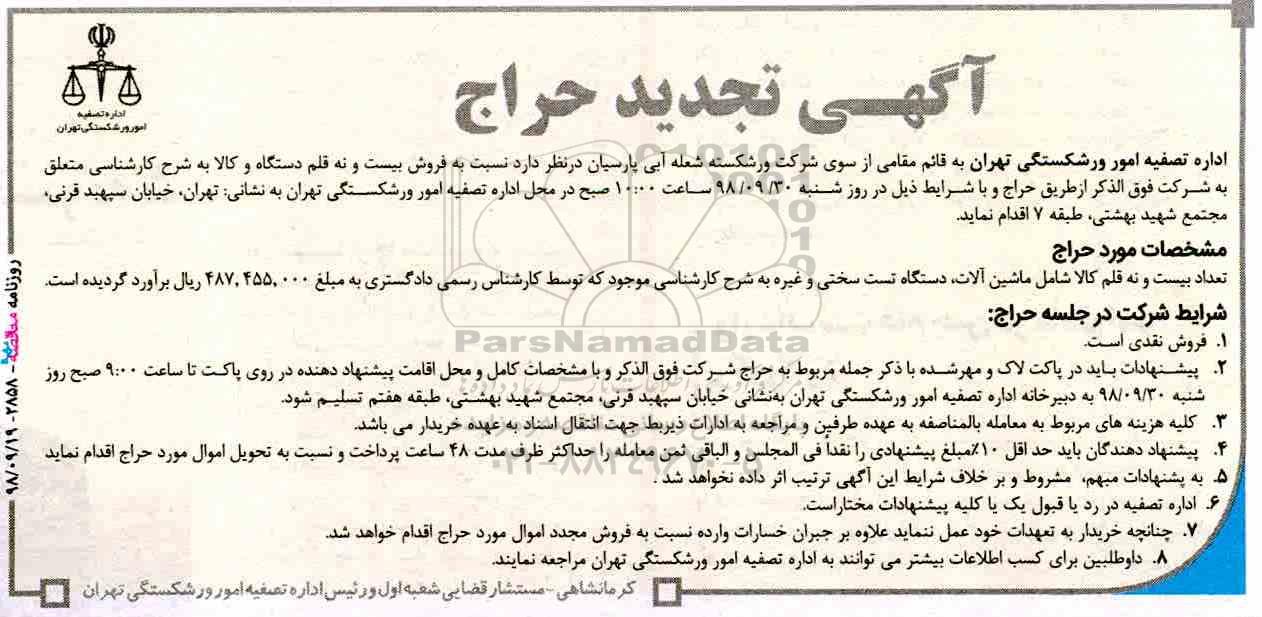 اداره تصفیه
امور ورشکستگی تهران
آگهـــی تجدید حراج
اداره تصفیه امور ورشکستگی تهران به قائم مقامی از سوی شرکت ورشکسته شعله آبی پارسیان درنظر دارد نسبت به فروش بیست و نه قلم دستگاه و کالا به شرح کارشناسی متعلق
به شــرکت فوق الذکر ازطریق حراج و با شــرایط ذیل در روز شــنبه ۹۸/۰۹/۳۰ ســاعت ۱۰:۰۰ صبح در محل اداره تصفیه امور ورشکســتگی تهران به نشانی: تهران، خیابان سپهبد قرنی،
مجتمع شهید بهشتی، طبقه ۷ اقدام نماید.
مشخصات مورد حراج
تعداد بیست و نه قلم کالا شامل ماشین آلات، دستگاه تست سختی و غیره به شرح کارشناسی موجود که توسط کارشناس رسمی دادگستری به مبلغ ۴۸۷,۴۵۵,۰۰۰ ریال برآورد گردیده است.
شرایط شرکت در جلسه حراج:
۱. فروش نقدی است.
۲. پیشــنهادات بـاید در پاکت لاک و مهرشـده با ذکر جمله مربوط به حراج شــرکت فوق الذکر و با مشخصات کامل و محل اقامت پیشنهاد دهنده در روی پاکـت تا ساعت ۹:۰۰ صبح روز
شنبه ۹۸/۰۹/۳۰ به دبیرخانه اداره تصفیه امور ورشکستگی تهران به‌نشانی خیابان سپهبد قرنی، مجتمع شهید بهشــتی، طبقه هفتم تسلیـم شود.
۳. کلیه هزینه های مربوط به معامله بالمناصفه به عهده طرفین و مراجعه به ادارات ذیربط جهت انتقال اسناد به عهده خریدار می باشد.
۴. پیشنهاد دهندگان باید حد اقل ۱۰٪مبلغ پیشنهادی را نقداً فی المجلس و الباقی ثمن معامله را حداکثر ظرف مدت ۴۸ ساعت پرداخت و نسبت به تحویل اموال مورد حراج اقدام نماید
۵. به پشنهادات مبهم، مشروط و بر خلاف شرایط این آگهی ترتیب اثر داده نخواهد شد .
۶. اداره تصفیه در رد یا قبول یک یا کلیه پیشنهادات مختاراست.
۷. چنانچه خریدار به تعهدات خود عمل ننماید علاوه بر جبران خسارات وارده نسبت به فروش مجدد اموال مورد حراج اقدام خواهد شد.
۸. داوطلبین برای کسب اطلاعات بیشتر می توانند به اداره تصفیه امور ورشکستگی تهران مراجعه نمایند.
کرمانشاهی - مستشار قضایی شعبه اول و رئیس اداره تصفیه امور ورشکستگی تهران
روزنامه مناقصه مزایده - ۲۸۵۸ - ۹۸/۰۹/۱۹
ParsNamadData
۰۲۱-۸۸۳۴۹۶۷۰-۵